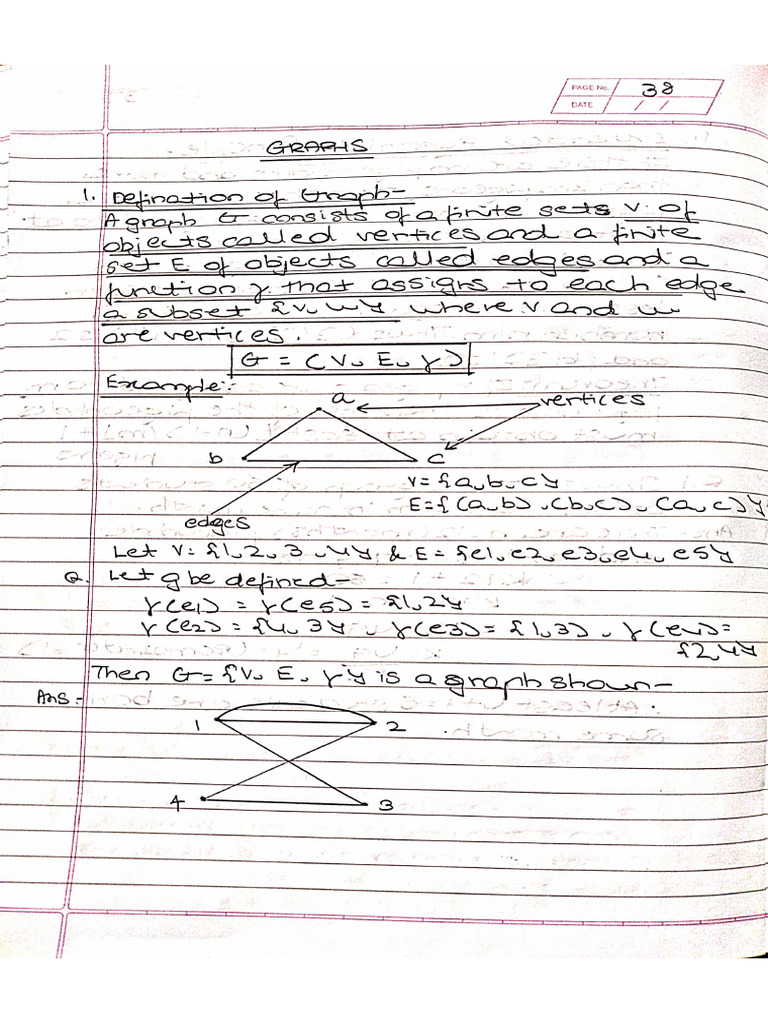 PAGE No. 38
DATE / /
GRAPHS
1. Defination of Graph-
A graph G consists of a finite sets V of
objects called vertices and a finite
set E of objects called edges and a
function γ that assigns to each edge
a subset {v, w} where v and w
are vertices.
G = (V, E, γ)
Example:-
a
vertices
b
c
V = {a, b, c}
E = {(a, b), (b, c), (a, c)}
edges
Let V = {1, 2, 3, 4} & E = {e1, e2, e3, e4, e5}
Q. Let g be defined-
γ(e1) = γ(e5) = {1, 2}
γ(e2) = {4, 3}, γ(e3) = {1, 3}, γ(e4) =
{2, 4}
Then G = {V, E, γ} is a graph shown-
Ans:-
1
2
4
3